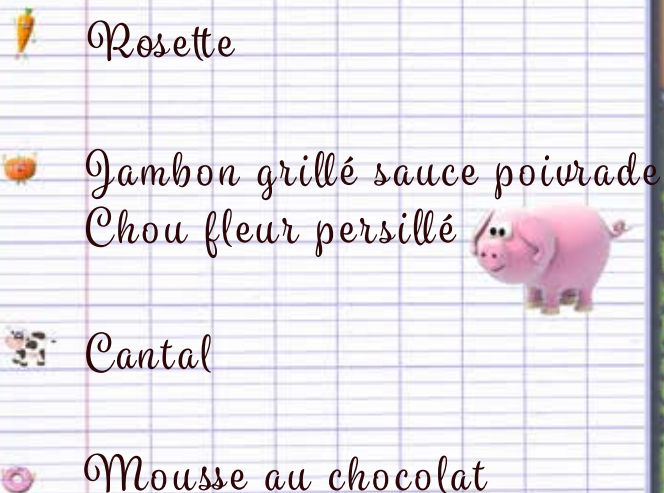 Rosette
Jambon grillé sauce poivrade
Chou fleur persillé
Cantal
Mousse au chocolat